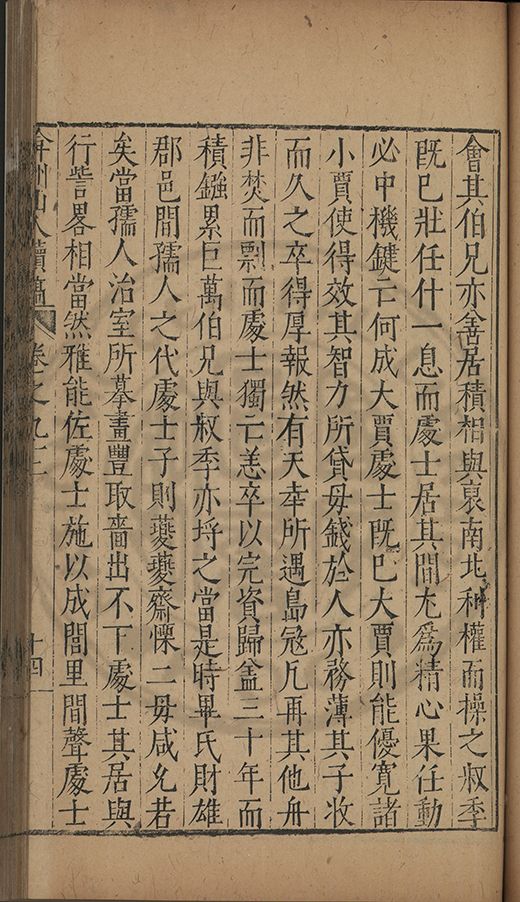 會其伯兄亦舍居積相與裒南北利權而操之叔季
既已壯任什一息而處士居其間尤爲精心果任動
必中機鍵亡何成大賈處士既已大賈則能優寬諸
小賈使得效其智力所貸毋錢於人亦務薄其子收
而久之卒得厚報然有天幸所遇島寇凡再其他舟
非焚而剽而處士獨亡恙卒以完資歸盖三十年而
積鏹累巨萬伯兄與叔季亦埒之當是時畢氏財雄
郡邑間孺人之代處士子則夔夔齋慄二毋咸允若
矣當孺人治室所摹畫豐取嗇出不下處士其居與
行訾畧相當然雅能佐處士施以成閭里間聲處士
弇州山人續藁 卷之九十三 十四